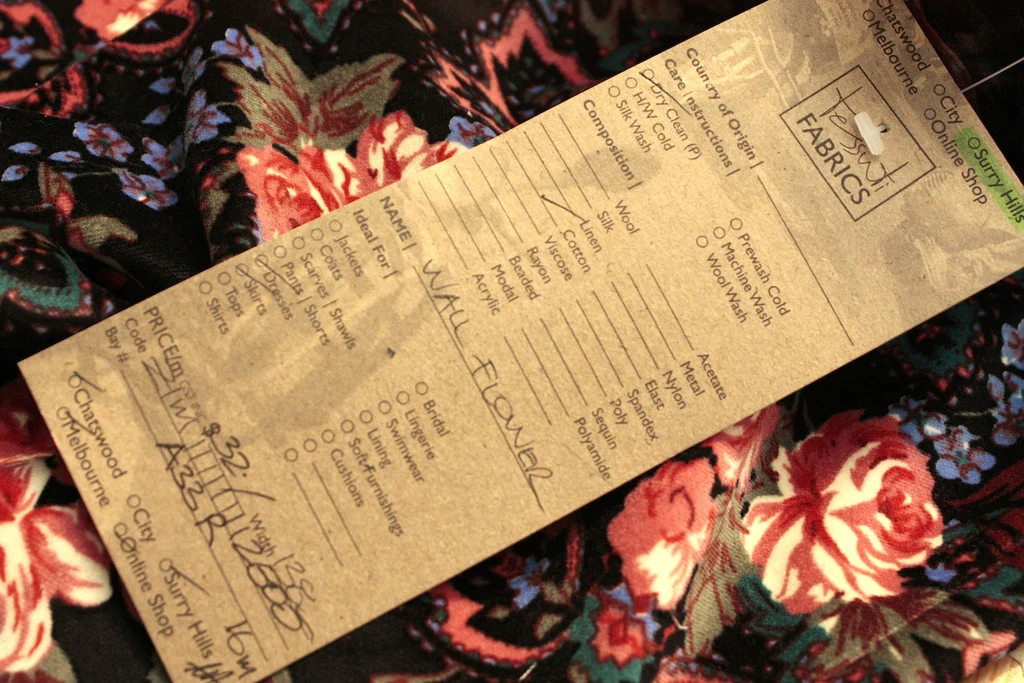 Chatswood
Melbourne
City
Online Shop
Surry Hills
Tessuti
FABRICS
Country of Origin |
Care Instructions |
Dry Clean (P)
H/W Cold
Silk Wash
Prewash Cold
Machine Wash
Wool Wash
Composition |
Wool
Silk
Linen
Cotton
Viscose
Rayon
Beaded
Modal
Acrylic
Acetate
Metal
Nylon
Elast
Spandex
Poly
Sequin
Polyamide
NAME | WALL FLOWER
Ideal For |
Jackets
Coats
Scarves | Shawls
Pants | Shorts
Dresses
Skirts
Tops
Shirts
Bridal
Lingerie
Swimwear
Lining
Soft Furnishings
Cushions
PRICE/m $32/ Width |
Code
Bay #: A33R 16m
Chatswood
Melbourne
City
Online Shop
Surry Hills